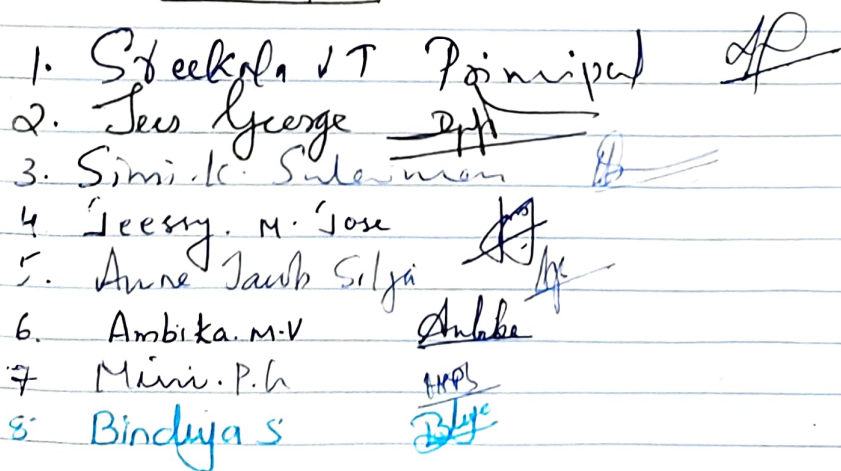 1. Sreekala V T Principal
2. Jees George
3. Simi. K. Sulaiman
4 Jeessy. M. Jose
5. Anne Jacob Silja
6. Ambika. M.V Ambika
7 Mini. P.
8 Bindiya S